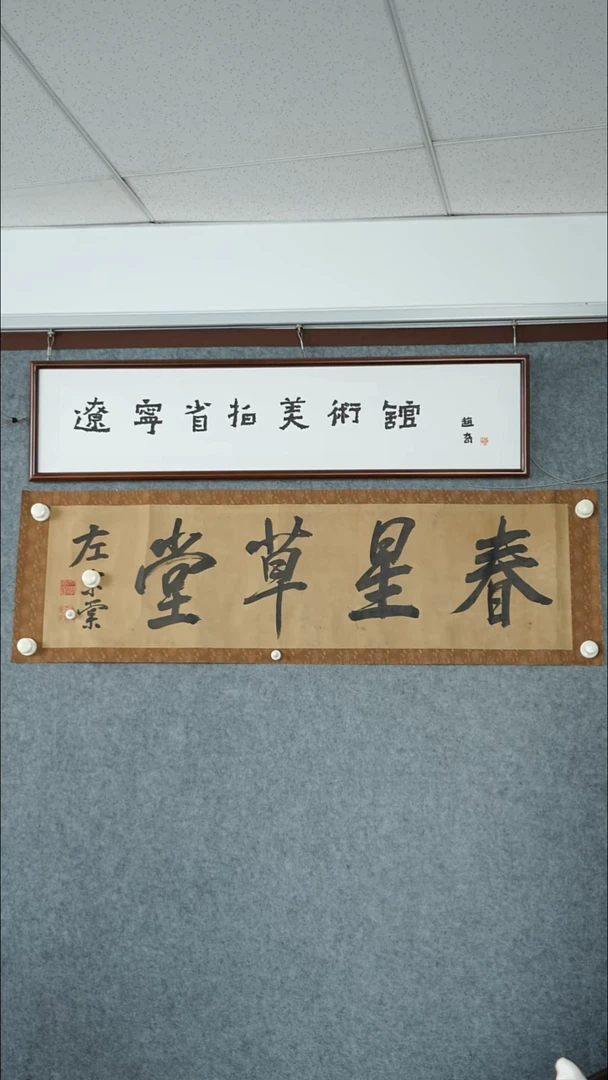 遼寧省拍美術館
趙奇
春星草堂
左宗棠